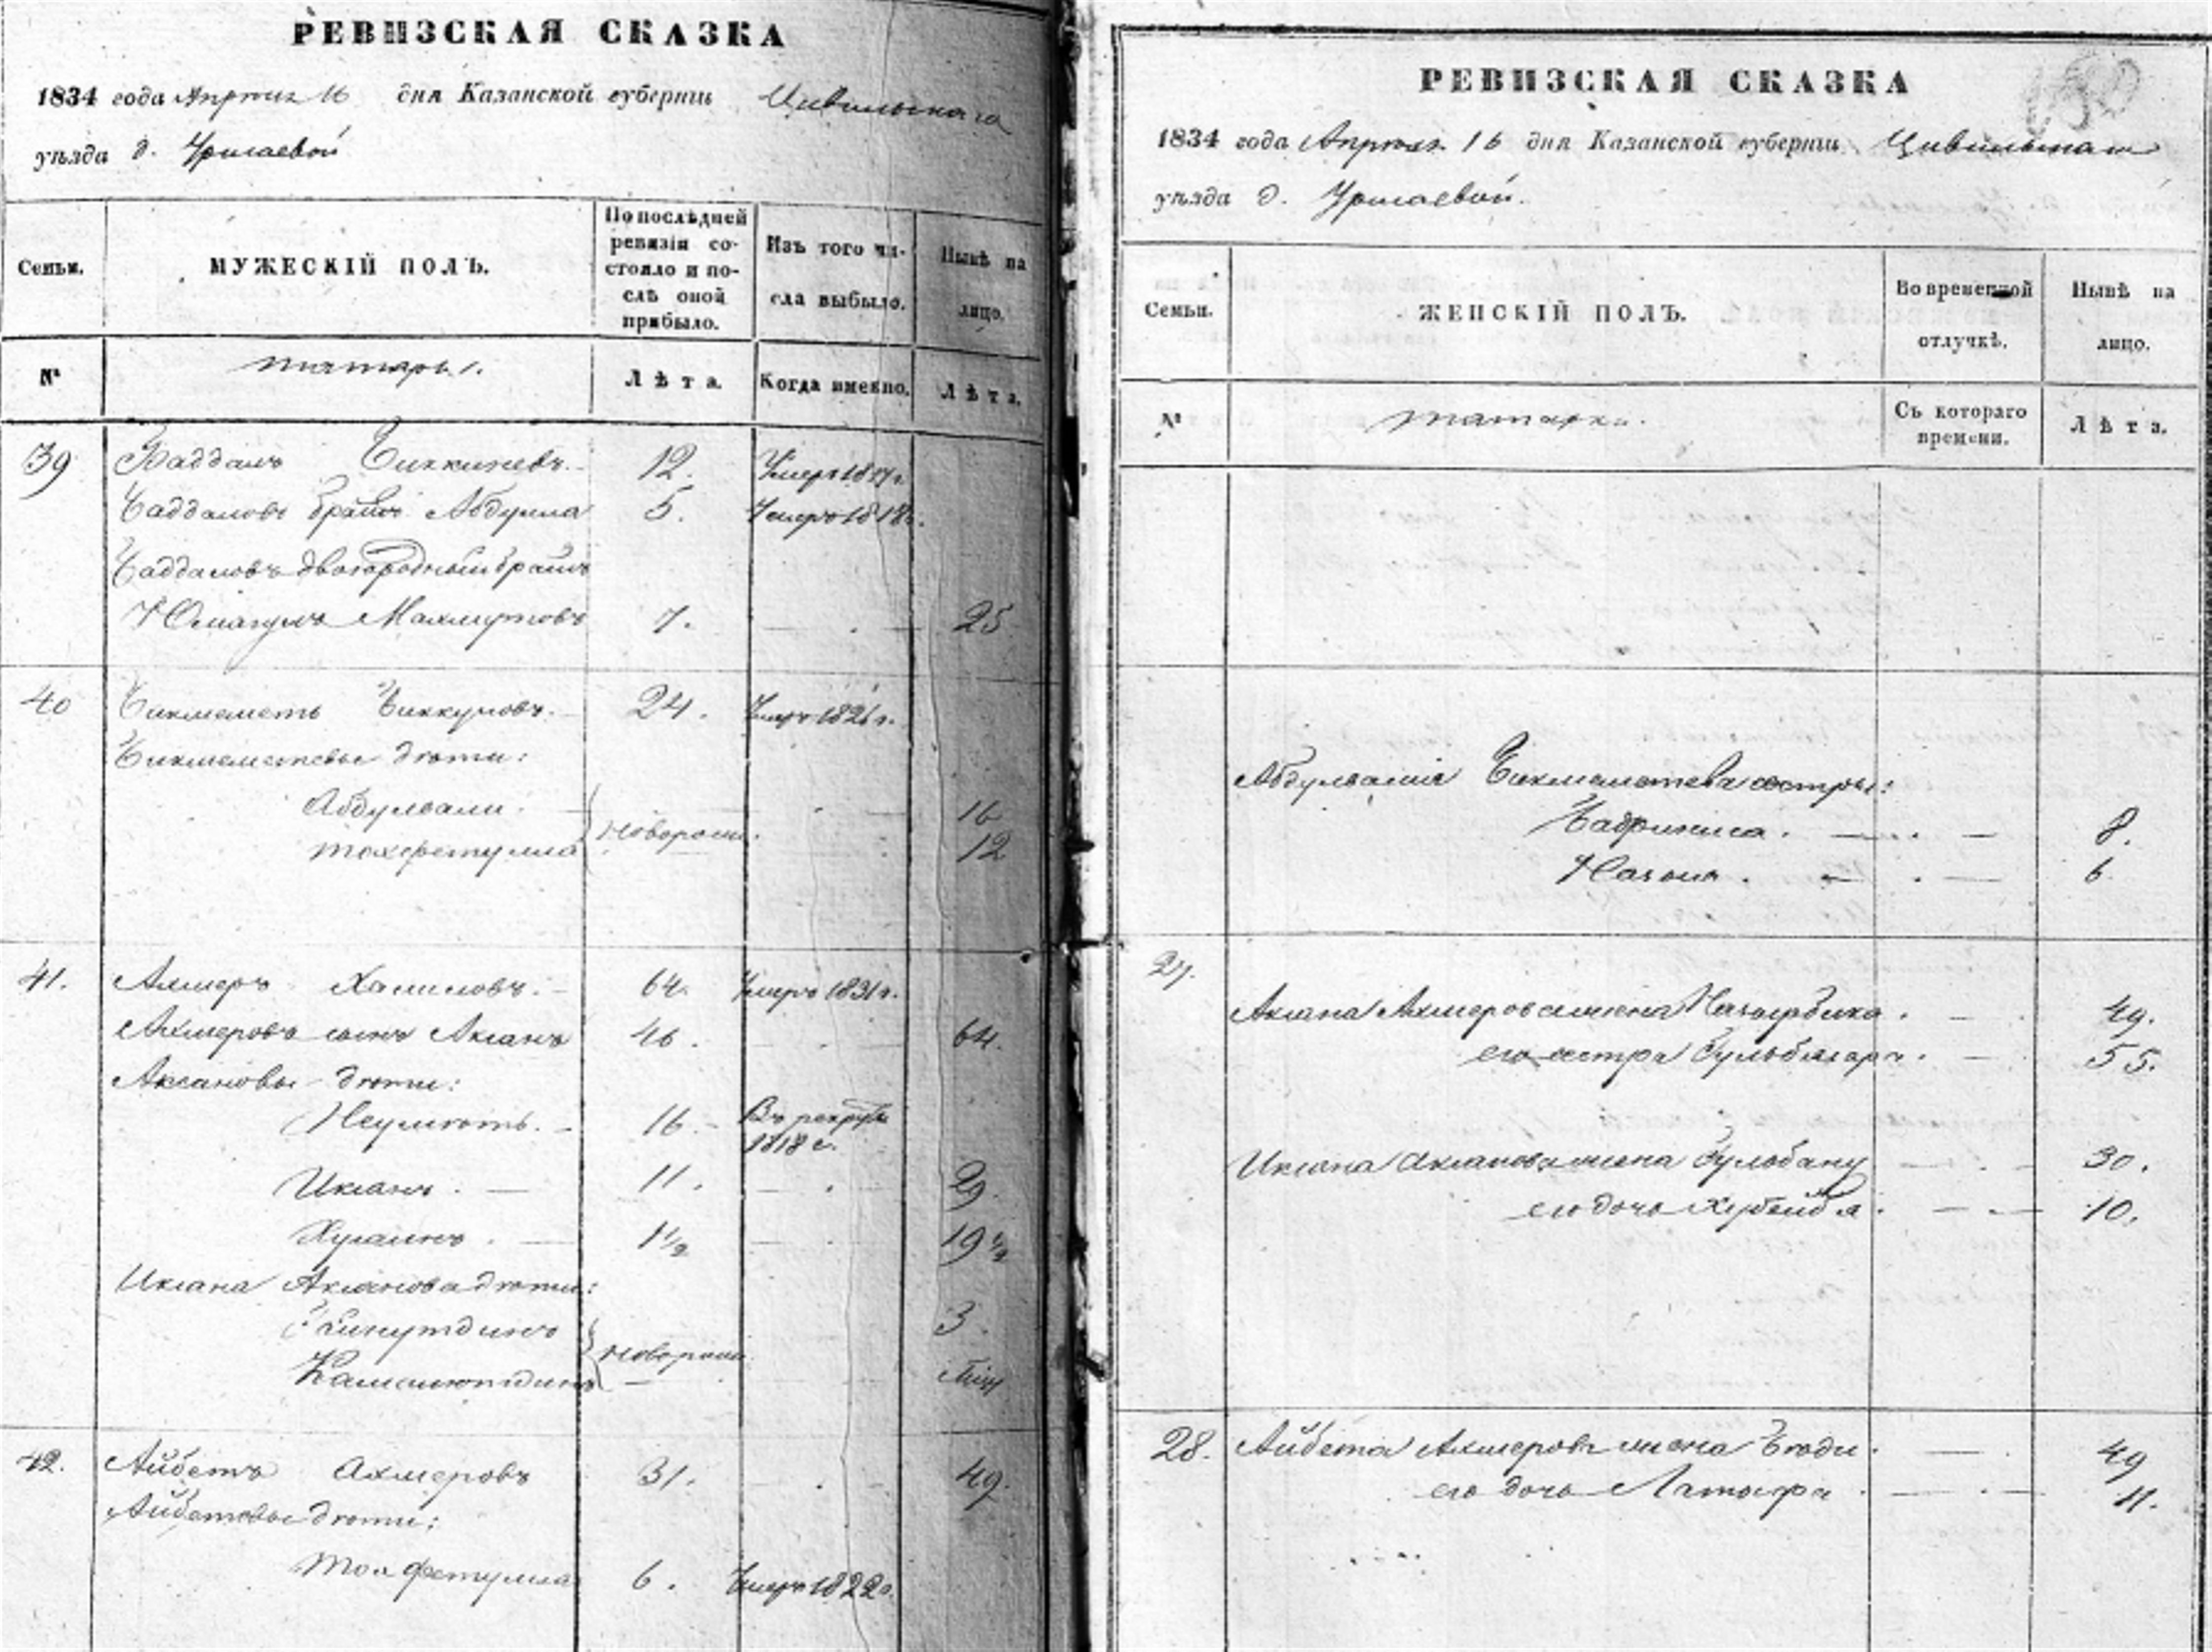 РЕВИЗСКАЯ СКАЗКА
1834 года Апреля 16 дня Казанской губерніи Цивильскаго
уѣзда д. Урмаевой
Семьи.
МУЖЕСКІЙ ПОЛЪ.
По послѣдней
ревизіи со-
стояло и по-
слѣ оной
прибыло.
Изъ того чи-
сла выбыло.
Нынѣ на
лицо.
№
татары.
Лѣта.
Когда именно.
Лѣта.
39 Баддалъ Биккиневъ. 12. Умеръ 1817 г.
Баддаловъ братъ Абдулла 5. Умеръ 1818 г.
Баддаловъ двоюродный братъ
Юмагулъ Махмутовъ 7. 25
40 Бикмеметь Биккуловъ. 24. Умеръ 1826 г.
Бикмеметевы дѣти:
Абдулвали. новорож. 16
12
41. Ахмеръ Халиловъ. 64. Умеръ 1831 г.
Ахмеровъ сынъ Аксанъ 46. 64.
Аксановы дѣти:
16. Въ рекруты
1818 г.
Иксанъ. 11. 29.
Хусаинъ. 1 1/2 19 1/2
Иксана Аксанова дѣти:
новорож. 3.
42. Айбетъ Ахмеровъ 31. 49.
Айбетовы дѣти:
6. Умеръ 1822 г.
РЕВИЗСКАЯ СКАЗКА
1834 года Апреля 16 дня Казанской губерніи Цивильскаго
уѣзда д. Урмаевой.
Семьи.
ЖЕНСКІЙ ПОЛЪ.
Во временной
отлучкѣ.
Нынѣ на
лицо.
№
татарки.
Съ котораго
времени.
Лѣта.
Абдулвалія Бикмеметева сестры:
Бадриниса. 8.
6.
27.
Аксана Ахмерова жена 49.
его сестра 55.
Иксана Аксанова жена Гульбану 30.
его дочь 10.
28. Айбета Ахмерова жена 49
его дочь Латыфа 11.